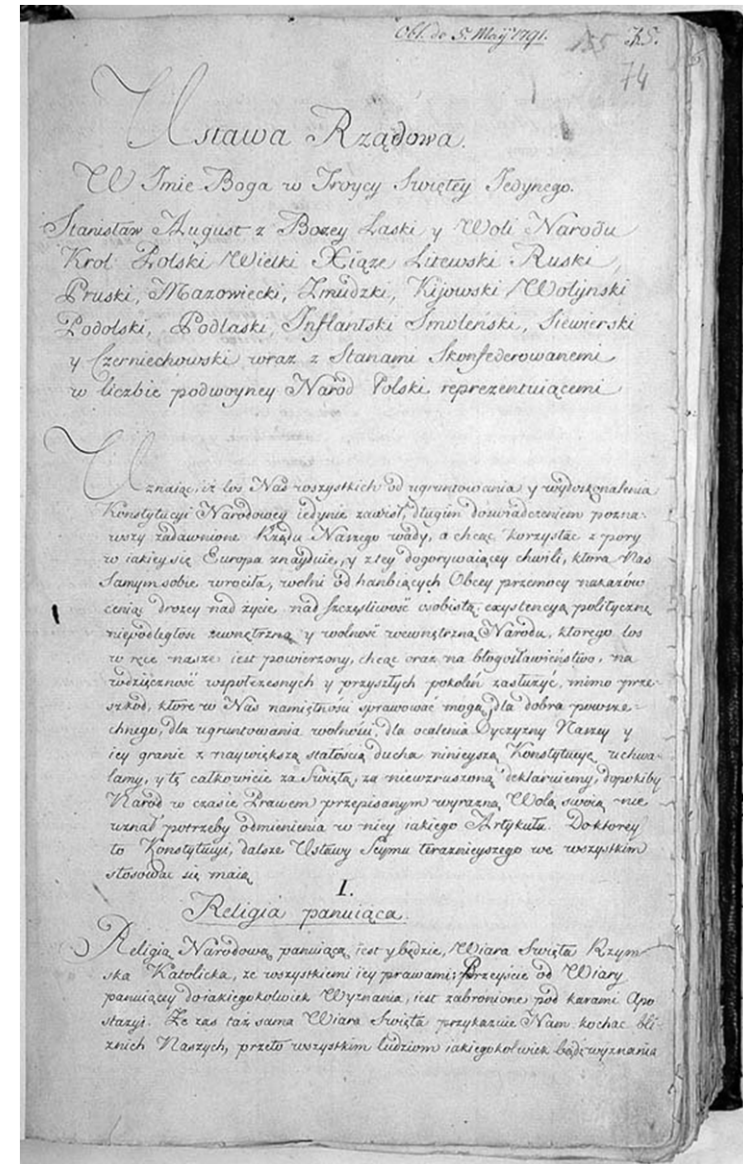 Obl. de 5. Maij 1791.
155
74
Ustawa Rządowa.
W Imie Boga w Troycy Swiętey Jedynego.
Stanisław August z Bozey Łaski y Woli Narodu
Krol Polski Wielki Xiąze Litewski Ruski,
Pruski, Mazowiecki, Zmudzki, Kijowski Wołynski
Podolski, Podlaski, Inflantski Smoleński, Siewierski
y Czerniechowski wraz z Stanami Skonfederowanemi
w liczbie podwoyney Naród Polski reprezentuiącemi
Uznaiąc, iż los Nas wszystkich od ugruntowania y wydoskonalenia
Konstytucyi Narodowey iedynie zawisł, długim doswiadczeniem pozna-
wszy zadawnione Rządu Naszego wady, a chcąc korzystać z pory
w iakiey się Europa znayduie, y z tey dogorywaiącey chwili, ktora Nas
Samym sobie wrociła, wolni od hanbiących Obcey przemocy nakazów
ceniąc drozey nad życie, nad szczęsliwość osobistą, exystencyą polityczną
niepodległosć zewnętrzną y wolność wewnętrzną Narodu, ktorego los
w ręce nasze iest powierzony, chcąc oraz na błogosławieństwo, na
wdzięczność wspołczesnych y przyszłych pokoleń zasłużyć, mimo prze-
szkód, które w Nas namiętności sprawować mogą, dla dobra powsze-
chnego, dla ugruntowania wolności, dla ocalenia Oyczyzny Naszey y
iey granic z naywiększą stałością ducha ninieyszą Konstytucyę uchwa-
lamy, y tę całkowicie za Swiętą, za niewzruszoną deklaruiemy, dopokiby
Naród w czasie Prawem przepisanym wyrazną Wolą swoią nie
uznał potrzeby odmienienia w niey iakiego Artykułu. Do ktorey
to Konstytucyi, dalsze Ustawy Seymu teraznieyszego we wszystkim
stosować się maią
I.
Religia panuiąca.
Religią Narodową panuiącą iest y będzie, Wiara Swięta Rzym-
ska Katolicka, ze wszystkiemi iey prawami; Przeyście od Wiary
panuiącey do iakiegokolwiek Wyznania, iest zabronione pod karami Apo
stazyi. Że zas taż sama Wiara Swięta przykazuie Nam kochać bli-
znich Naszych, przeto wszystkim ludziom iakiegokolwiek bądz wyznania